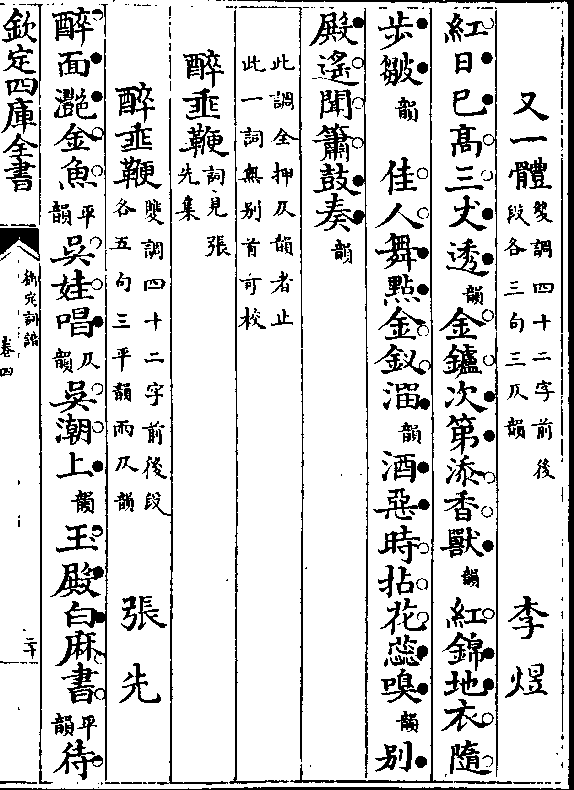 又一體雙調四十二字前後段各三句三仄韻 李煜
紅日已高三丈透韻金鑪次第添香獸韻紅錦地衣隨
步皺韻 佳人舞點金釵溜韻酒惡時拈花蕊嗅韻别
殿遙聞簫鼓奏韻
此調全押仄韻者止
此一詞無别首可校
醉垂鞭詞見張先集
醉垂鞭雙調四十二字前後段各五句三平韻兩仄韻 張先
醉面灧金魚平韻吳娃唱仄韻吳潮上韻玉殿白麻書平韻待
欽定四庫全書
欽定詞譜
卷四
二十